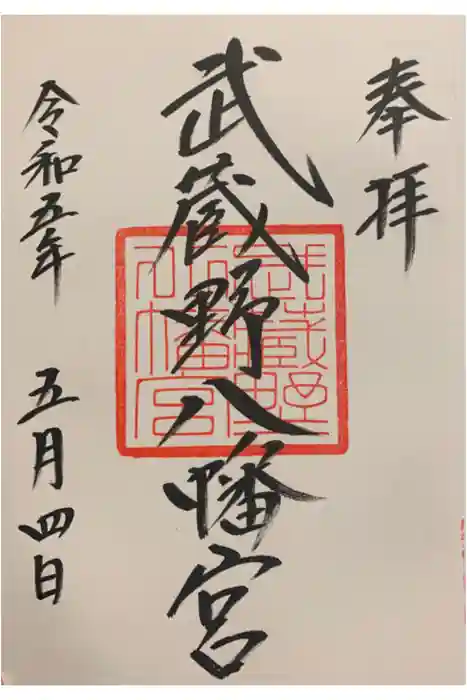 奉拝
武蔵野八幡宮
令和五年 五月四日
武蔵野
八幡宮